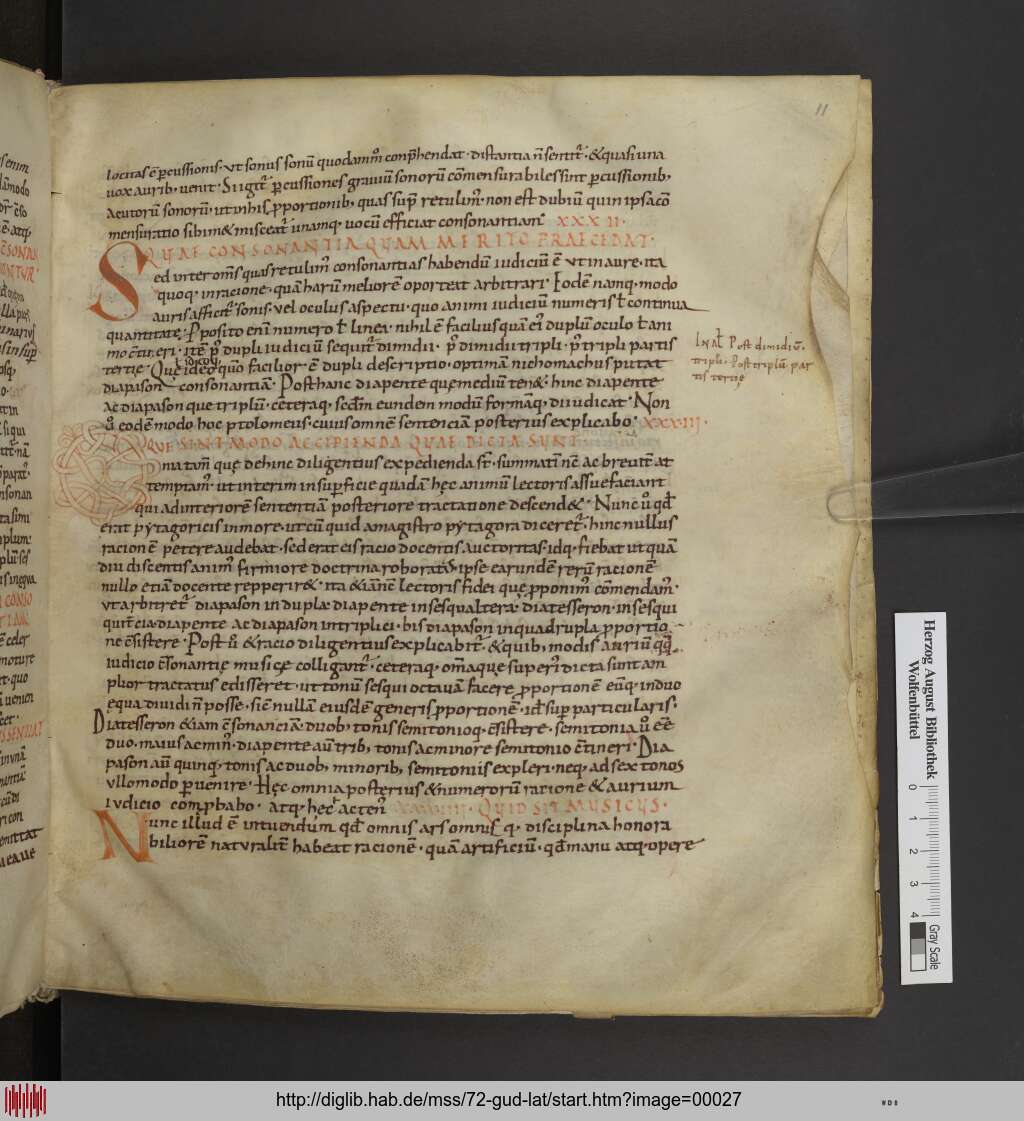 11
locitas ē p̄cussionis · ut sonus sonū quodammͦ conp̄hendat · distantia ñ sentit̄ · & quasi una
uox aurib; uenit · Si igit̄ p̄cussiones grauiū sonorū cōmensurabiles sint p̄cussionib;
acutorū sonorū · ut in his p̱portionib; quas sup̄ retulim̄ · non est dubiū quin ipsa cō
mensuratio sibimet misceat̄ unamq; uocū efficiat consonantiam · XXXII ·
QUAE CONSONANTIA QUAM MERITO PRAECEDAT ·
Sed inter om̄s quas retulim̄ consonantias habendū iudiciū ē · ut in aure · ita
quoq; in racione · quā harū meliorē oporteat arbitrari · Eodē namq; modo
auris afficit̄ sonis · vel oculus aspectu · quo animi iudiciū numeris ł continua
quantitate · P̱posito enī numero ł linea · nihil ē facilius quā ei᷒ duplū oculo ł ani
mo ꝯtueri · itē p̄ dupli iudiciū sequit̄ dimidii · p̄ dimidii tripli · p̄ tripli partis
tertię · Quę ideo quō facilior ē dupli descriptio · optimā nichomachus putat
diapason consonantiā · Post hanc diapente quę mediū ten& · hinc diapente
ac diapason quę triplū · ceteraq; scdm̄ eundem modū formāq; diiudicat · Non
ů eodē modo hoc ptolomeus · cuius omnē sentenciā posterius explicabo · XXXIII ·
QUE SINT MODO ACCIPIENDA QUAE DICTA SUNT
Omnia tam̄ quę dehinc diligentius expedienda st̄ · summatī nc̄ ac breuit̄ at
temptam̄ · ut interim in sup̄ficie quadā hęc animū lectoris assuefaciant
qui ad interiorē sententiā posteriore tractatione descend& · Nunc ů qd̄
erat pẏtagoricis in more · ut cū quid a magistro pẏtagora diceret̄ · hinc nullus
racionē petere audebat · sed erat eis racio docentis auctoritas · idq; fiebat ut quā
diu discentis anim᷒ firmiore doctrina roborat᷒ · ipse earundē rerū racionē
nullo etiā docente repperir& · ita & iā nc̄ lectoris fidei quę p̱ponim᷒ cōmendam᷒ ·
ut arbitret̄ diapason in dupla · diapente in sesqualtera · diatesseron · in sesqui
quit̄cia · diapente ac diapason in triplici · bis diapason in quadrupla p̱portio
ne ꝯsistere · Post ů & racio diligentius explicabit̄ · & quib; modis auriū qq̄
iudicio ꝯsonantię musicę colligant̄ · ceteraq; om̄ia quę superi᷒ dicta sunt am
plior tractatus edisseret · ut tonū sesqui octauā facere p̱portionē eūq; in duo
ęqua diuidi ñ posse · sic̄ nullā eiusdē generis p̱portionē · id ē sup̄ particularis ·
Diatesseron etiam ꝯsonanciā · duob; tonis semitonioq; ꝯsistere · semitonia ů eē
duo · maius ac min᷒ · diapente aū trib; tonis ac minore semitonio ꝯtineri · Dia
pason aū quinq; tonis ac duob; minorib; semitoniis expleri · neq; ad sex tonos
ullo modo p̄uenire · Hęc omnia posterius & numerorū racione & aurium
iudicio comp̱babo · atq; hęc acten᷒ XXXIIII · QUID SIT MUSICUS ·
Nunc illud ē intuendum qd̄ omnis ars omnisq; disciplina honora
biliorē naturalit̄ habeat racionē · quā artificiū · qd̄ manu atq; opere
In al̄ Post dimidiū ·
tripli · Post triplū par
tis tertię
Herzog August Bibliothek
Wolfenbüttel
0 1 2 3 4
Gray Scale
http://diglib.hab.de/mss/72-gud-lat/start.htm?image=00027